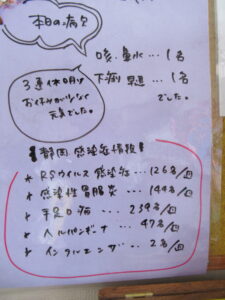 本日の病欠
咳・鼻水…1名
下痢 …1名
でした。
3連休明け
お休みが少なく
元気でした。
【静岡 感染症情報】
* RSウイルス感染症…126名/週
* 感染性胃腸炎…144名/週
* 手足口病…239名/週
* ヘルパンギーナ…47名/週
* インフルエンザ…2名/週